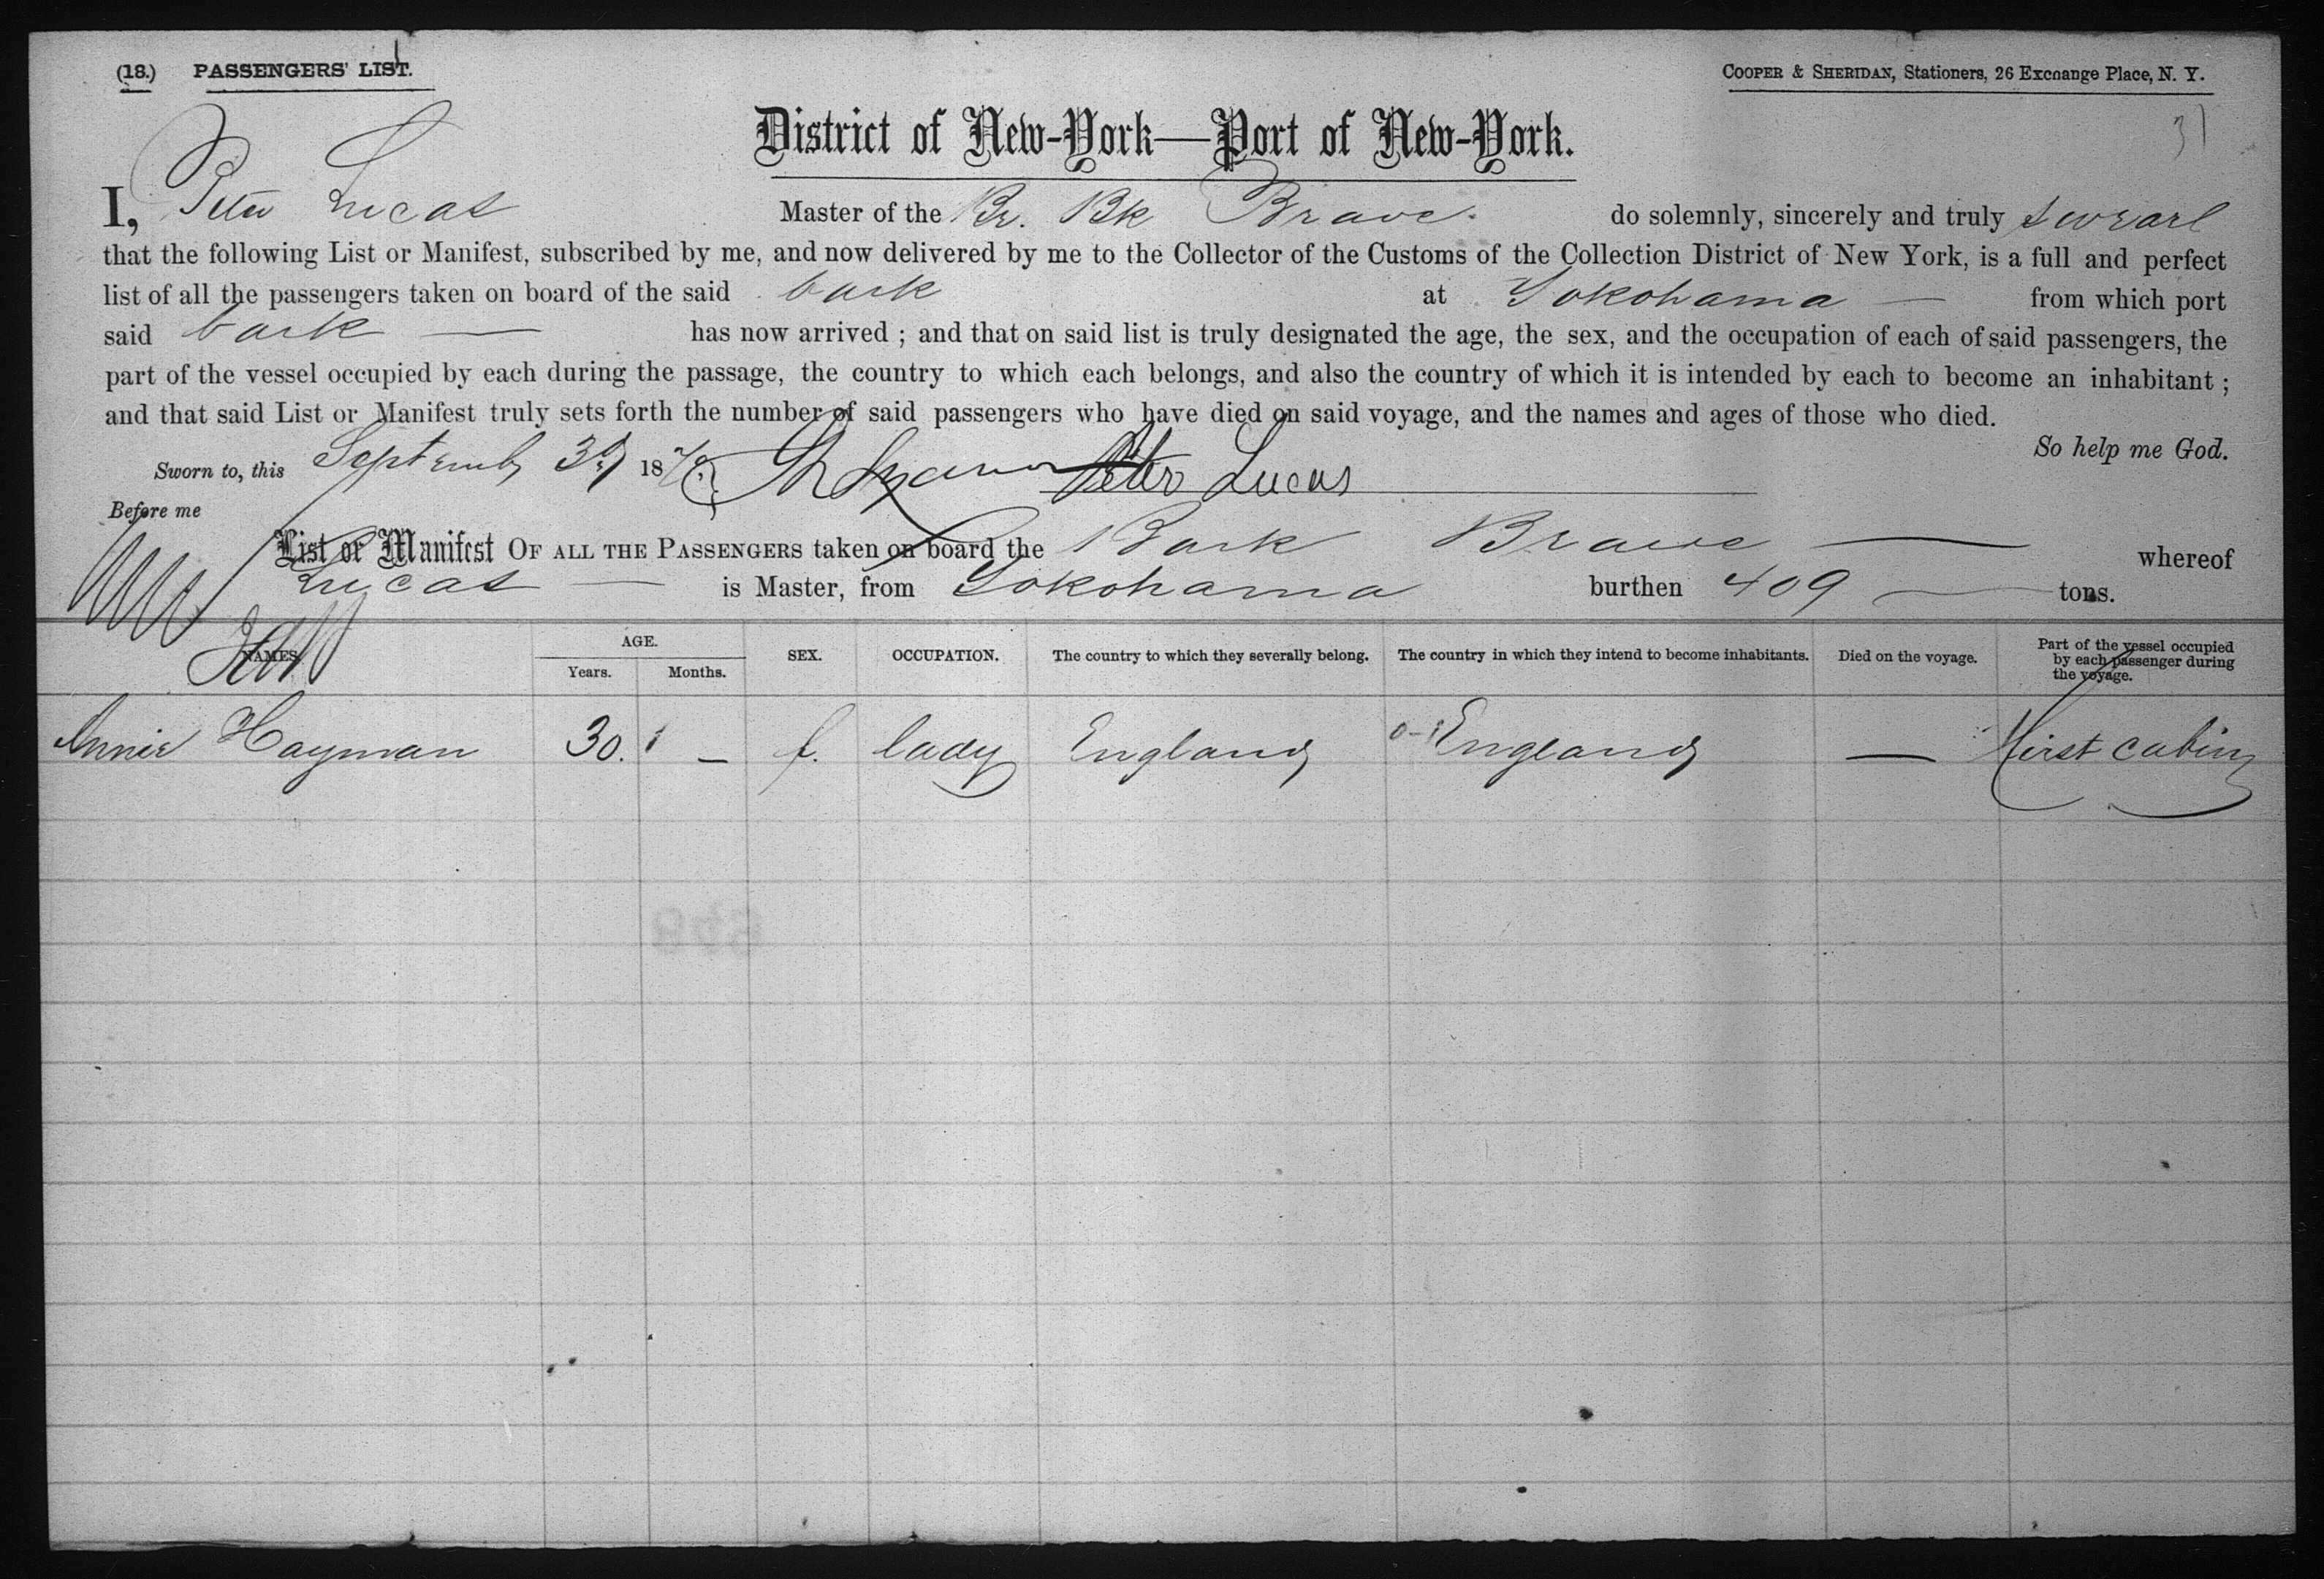 (18.) PASSENGERS' LIST.
COOPER & SHERIDAN, Stationers, 26 Exchange Place, N. Y.
31
District of New-York—Port of New-York.
I, Peter Lucas Master of the Br. Bk Brave. do solemnly, sincerely and truly swear
that the following List or Manifest, subscribed by me, and now delivered by me to the Collector of the Customs of the Collection District of New York, is a full and perfect
list of all the passengers taken on board of the said bark at Yokohama — from which port
said bark — has now arrived ; and that on said list is truly designated the age, the sex, and the occupation of each of said passengers, the
part of the vessel occupied by each during the passage, the country to which each belongs, and also the country of which it is intended by each to become an inhabitant ;
and that said List or Manifest truly sets forth the number of said passengers who have died on said voyage, and the names and ages of those who died.
So help me God.
Sworn to, this September 3d 187
Peter Lucas
Before me
List or Manifest OF ALL THE PASSENGERS taken on board the Bark Brave — whereof
Lucas — is Master, from Yokohama burthen 409 — tons.
NAMES. AGE. Years. Months. SEX. OCCUPATION. The country to which they severally belong. The country in which they intend to become inhabitants. Died on the voyage. Part of the vessel occupied by each passenger during the voyage.
Annie Hayman 30. — f. lady England England — First cabin